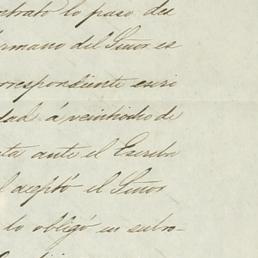 ctrato lo puso des
ermano del Señor es
orrespondiente escri
dad á veintiocho de
ta ante el Escriba
l aceptó el Señor
lo obligó en subro-